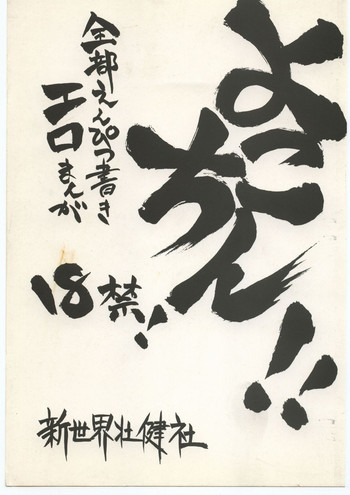 よこ
ちん!!
全部えんぴつ書き
エロまんが
18禁!
新世界壮健社